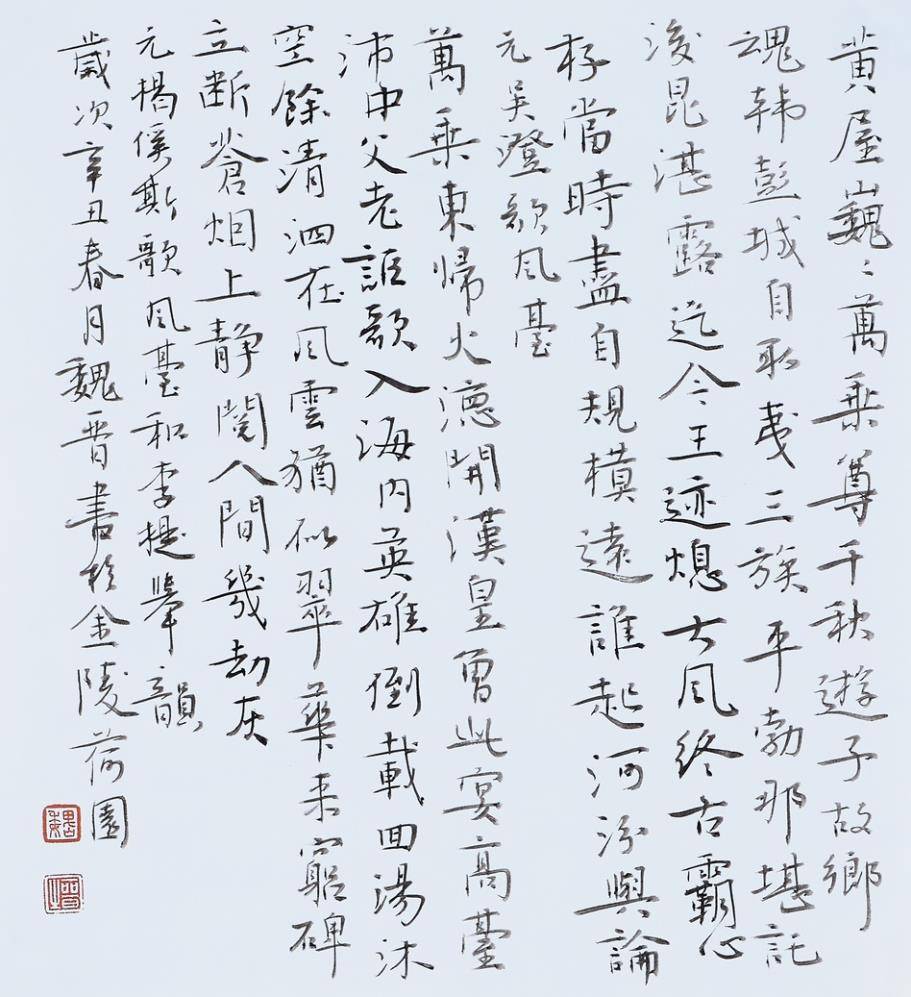 黄屋巍々萬乗尊千秋遊子故鄉
魂韩彭城自取夷三族平勃那堪託
後昆湛露迄今王迹熄大風終古霸心
存當時盡自規模遠誰起河汾與論
元吴澄歌風臺
萬乗東歸火德開漢皇曾此宴髙臺
沛中父老謳歌入海内英雄倒載回湯沐
空餘清泗在風雲猶似翠華来窮碑
立断苍烟上静閲人間幾劫灰
元楊傒斯歌風臺和李提舉韻
歲次辛丑春月魏晋書於金陵荷園
魏